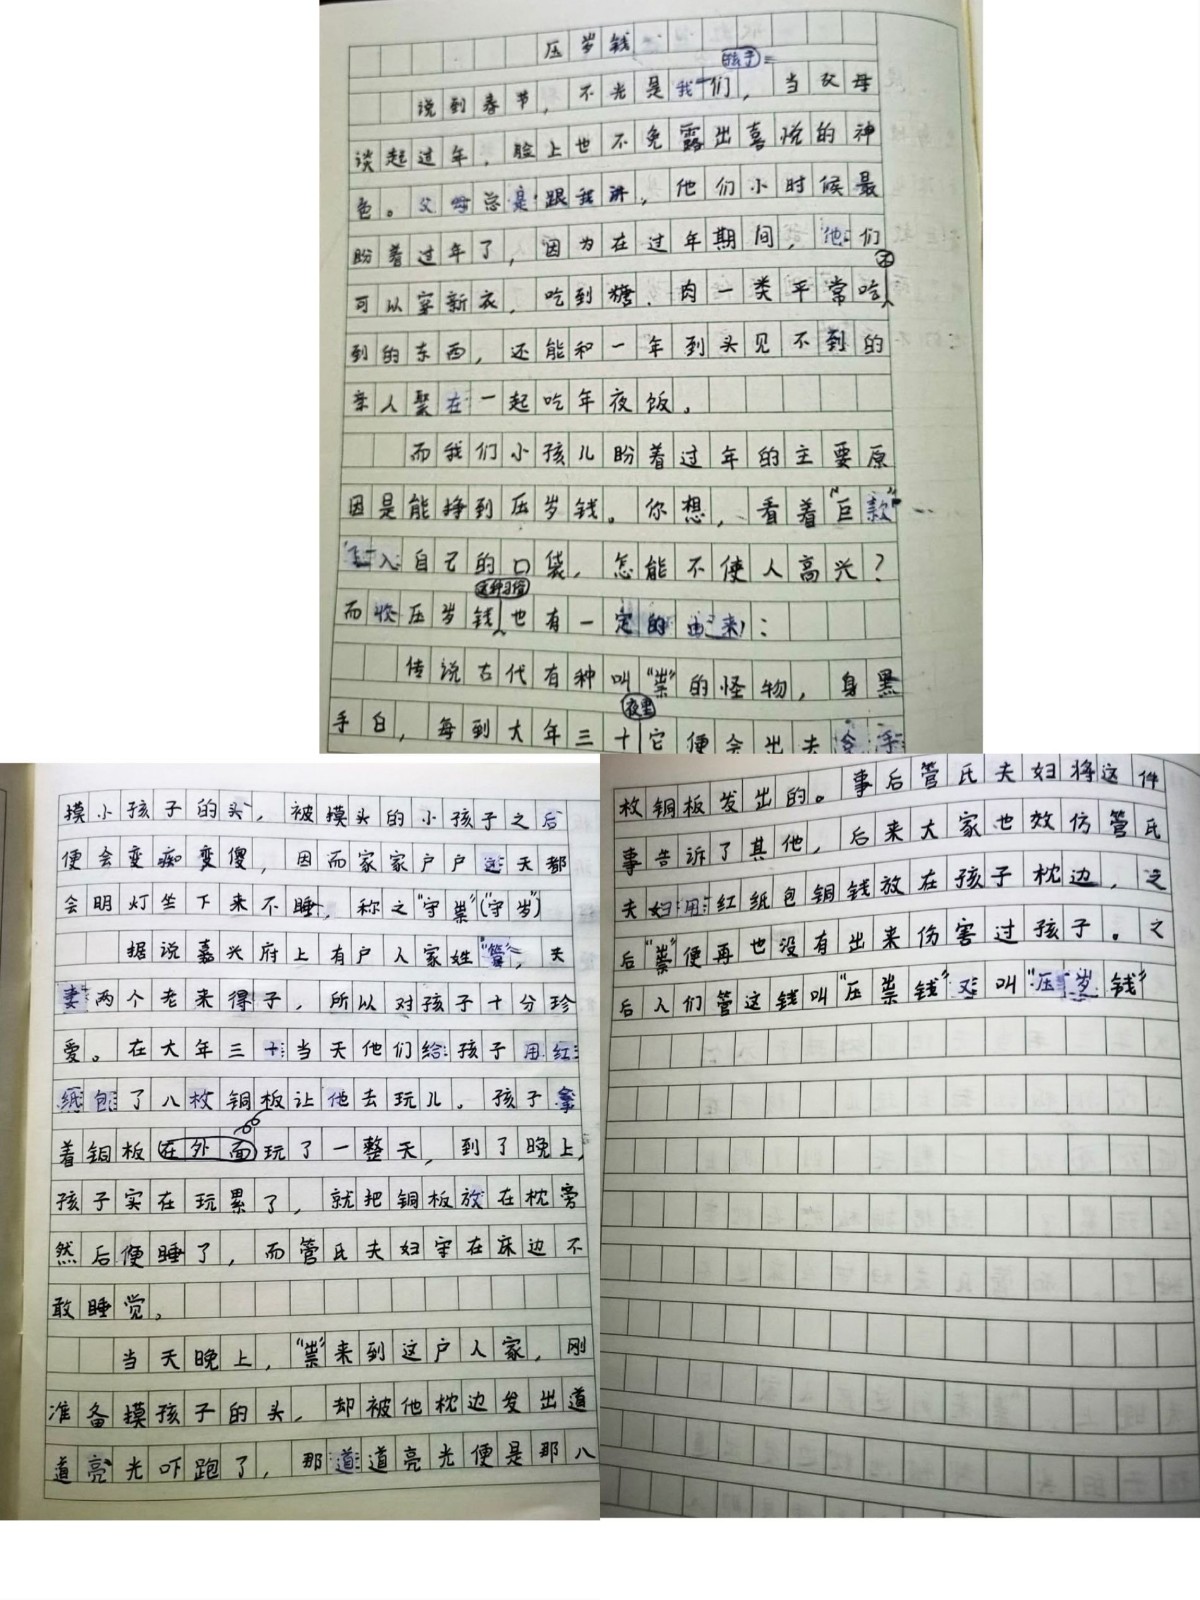 压岁钱
孩子
说到春节，不光是我们，当父母
谈起过年，脸上也不免露出喜悦的神
色。父母总是跟我讲，他们小时候最
盼着过年了，因为在过年期间，他们
可以穿新衣，吃到糖、肉一类平常吃不
到的东西，还能和一年到头见不到的
亲人聚在一起吃年夜饭。
而我们小孩儿盼着过年的主要原
因是能挣到压岁钱。你想，看着“巨款”
入自己的口袋，怎能不使人高兴？
这种习俗
而收压岁钱也有一定的由来：
传说古代有种叫“祟”的怪物，身黑
夜里
手白，每到大年三十它便会出去
摸小孩子的头，被摸头的小孩子之后
便会变痴变傻，因而家家户户这天都
会明灯坐下来不睡，称之“守祟”（“守岁”）
据说嘉兴府上有户人家姓“管”，夫
妻两个老来得子，所以对孩子十分珍
爱。在大年三十当天他们给孩子用红
纸包了八枚铜板让他去玩儿。孩子拿
着铜板在外面玩了一整天，到了晚上，
孩子实在玩累了，就把铜板放在枕旁
然后便睡了，而管氏夫妇守在床边不
敢睡觉。
当天晚上，“祟”来到这户人家，刚
准备摸孩子的头，却被他枕边发出道
道亮光吓跑了，那道道亮光便是那八
枚铜板发出的。事后管氏夫妇将这件
事告诉了其他，后来大家也效仿管氏
夫妇用红纸包铜钱放在孩子枕边，之
后“祟”便再也没有出来伤害过孩子。之
后人们管这钱叫“压祟钱”又叫“压岁钱”